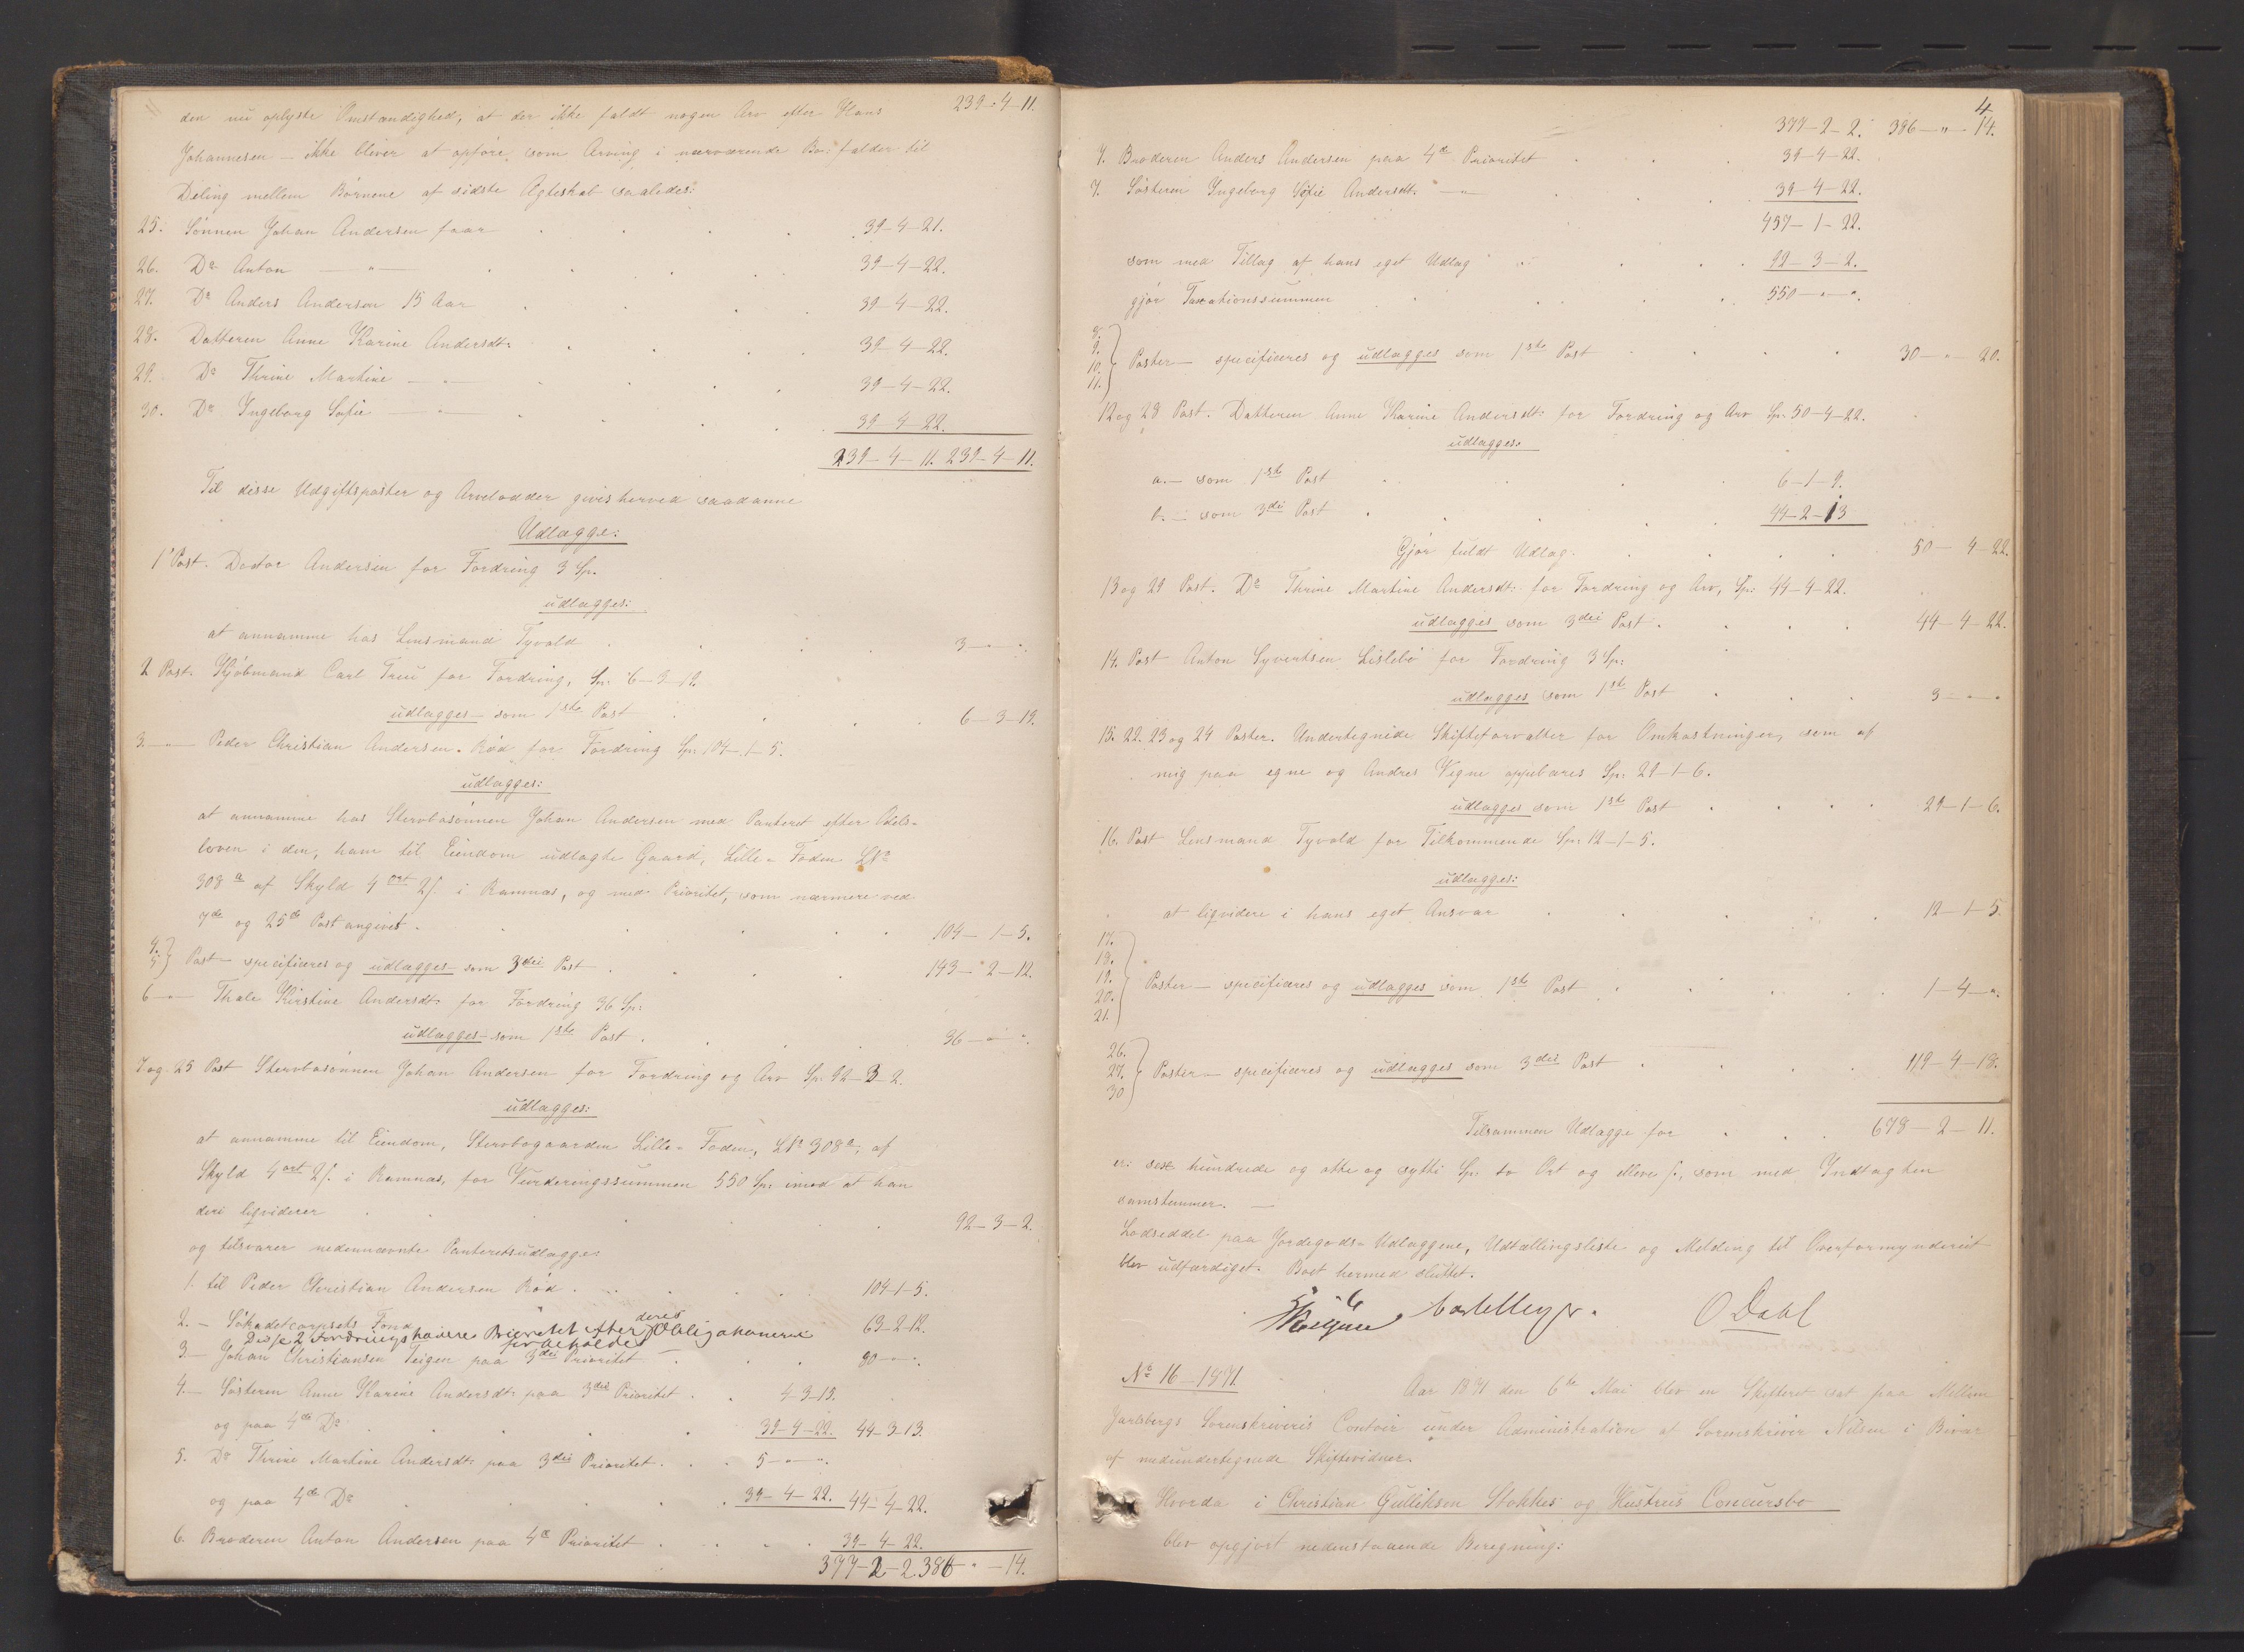 den nu oplyste Omstændighed, at der ikke faldt nogen Arv efter Hans 239-4-11.
Johannesen – ikke bliver at opføre som Arving i nærværende Bo: falder til
Deling mellem Børnene af sidste Ægteskab saaledes:
25. Sønnen Johan Andersen faar 39-4-21.
26. Do Anton — " — 39-4-22.
27. Do Anders Andersen 15 Aar 39-4-22.
28. Datteren Anne Karine Andersdt: 39-4-22.
29. Do Thrine Martine — " — 39-4-22.
30. Do Ingeborg Sofie — " — 39-4-22.
239-4-11. 239-4-11.
Til disse Udgiftsposter og Arvelodder gives herved saadanne
Udlægge:
1 Post. Doctor Andersen for Fordring 3 Sp.
udlægges:
at annamme hos Lensmand Tyvold 3 — " — ".
2 Post. Kjøbmand Carl Treu for Fordring, Sp: 6-3-19.
udlægges – som 1ste Post 6-3-19.
3. — " — Peder Christian Andersen Rød for Fordring Sp: 104-1-5.
udlægges:
at annamme hos Stervbosønnen Johan Andersen med Panteret efter Odels-
loven i den, ham til Eiendom udlagte Gaard, Lille-Foden LNo
308a af Skyld 4 ort 2 s. i Ramnæs, og med Prioritet, som nærmere ved
7de og 25de Post angivet. 104-1-5.
4. 5. Post – specificeres og udlægges – som 3die Post 143-2-12.
6 — " — Thale Kirstine Andersdt: for Fordring 36 Sp:
udlægges – som 1ste Post. 36 — " — ".
7 og 25 Post Stervbosønnen Johan Andersen for Fordring og Arv Sp: 92-3-2.
udlægges:
at annamme til Eiendom, Stervbogaarden Lille-Foden, LNo 308a, af
Skyld 4 ort 2 s. i Ramnæs, for Vurderingssummen 550 Sp: imod at han
deri liqviderer 92-3-2.
og tilsvarer nedennævnte Panteretsudlægge:
1. til Peder Christian Andersen Rød 104-1-5.
2. – Søkadetcorpsets Fond 63-2-12.
Disse 2 Fordringshavere Prioritet efter deres Obligationer
forbeholdes
3. – Johan Christiansen Teigen paa 3die Prioritet 80 — " — ".
4. – Søsteren Anne Karine Andersdt: paa 3die Prioritet 4-3-13.
og paa 4de Do 39-4-22. 44-3-13.
5. Do Thrine Martine Andersdt: paa 3die Prioritet 5 — " — ".
og paa 4de Do 39-4-22. 44-4-22.
6. Broderen Anton Andersen paa 4de Prioritet 39-4-22.
377-2-2. 386 - " - 14.
4.
377-2-2. 386 — " — 14.
7. Broderen Anders Andersen paa 4de Prioritet 39-4-22.
7. Søsteren Ingeborg Sofie Andersdt: — " — 39-4-22.
457-1-22.
som med Tillæg af hans eget Udlæg 92-3-2.
gjør Taxationssummen 550 — " — ".
8. 9. 10. 11. Poster – specificeres og udlægges som 1ste Post 30 — " — 20.
12 og 28 Post. Datteren Anne Karine Andersdt: for Fordring og Arv Sp: 50-4-22.
udlægges.
a. – som 1ste Post 6-1-9.
b. – som 3die Post 44-2-13
Gjør fuldt Udlæg. 50-4-22.
13 og 29 Post. Do Thrine Martine Andersdt: for Fordring og Arv, Sp: 44-4-22.
udlægges som 3die Post. 44-4-22.
14. Post Anton Syvertsen Lislebø for Fordring 3 Sp:
udlægges som 1ste Post 3 — " — "
15. 22. 23 og 24 Poster. Undertegnede Skifteforvalter for Omkostninger, som af
mig paa egne og Andres Vegne oppebæres Sp: 29-1-6.
udlægges som 1ste Post 29-1-6.
16. Post Lensmand Tyvold for Tilkommende Sp: 12-1-5.
udlægges:
at liqvidere i hans eget Ansvar 12-1-5.
17. 18. 19. 20. 21. Poster – specificeres og udlægges som 1ste Post 1-4-".
26. 27. 30 Poster – specificeres og udlægges som 3die Post 119-4-18.
Tilsammen Udlægge for 678-2-11.
er: sex hundrede og otte og sytti Sp: to Ort og elleve s., som med Indtægten
samstemmer. —
Lodseddel paa Jordegods-Udlæggene, Udtællingsliste og Melding til Overformynderiet
blev udfærdiget. Boet hermed sluttet.
O Dahl
No 16 – 1871.
Aar 1871 den 6te Mai blev en Skifteret sat paa Mellem
Jarlsbergs Sorenskriveris Contoir under Administration af Sorenskriver Nilsen i Bivær
af medundertegnede Skiftevidner.
Hvorda i Christian Gulliksen Stokkes og Hustrues Concursbo
blev opgjort nedenstaaende Beregning: